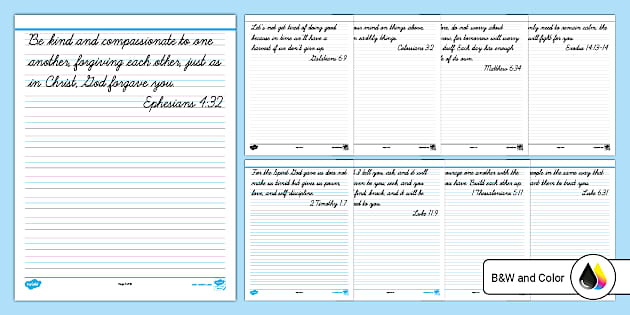 Be kind and compassionate to one
another, forgiving each other, just as
in Christ, God forgave you.
Ephesians 4:32
Let's not get tired of doing good
because in time we'll have a
harvest if we don't give up.
Galatians 6:9
our mind on things above,
earthly things.
Colossians 3:2
re, do not worry about
for tomorrow will worry
itself. Each day has enough
of its own.
Matthew 6:34
only need to remain calm; the
will fight for you.
Exodus 14:13-14
For the Spirit God gave us does not
make us timid but gives us power,
love, and self-discipline.
2 Timothy 1:7
I tell you, ask, and it will
given to you; seek, and you
find; knock, and it will be
to you.
Luke 11:9
encourage one another with the
you have. Build each other up
1 Thessalonians 5:11
people in the same way that
want them to treat you.
Luke 6:31
B&W and Color